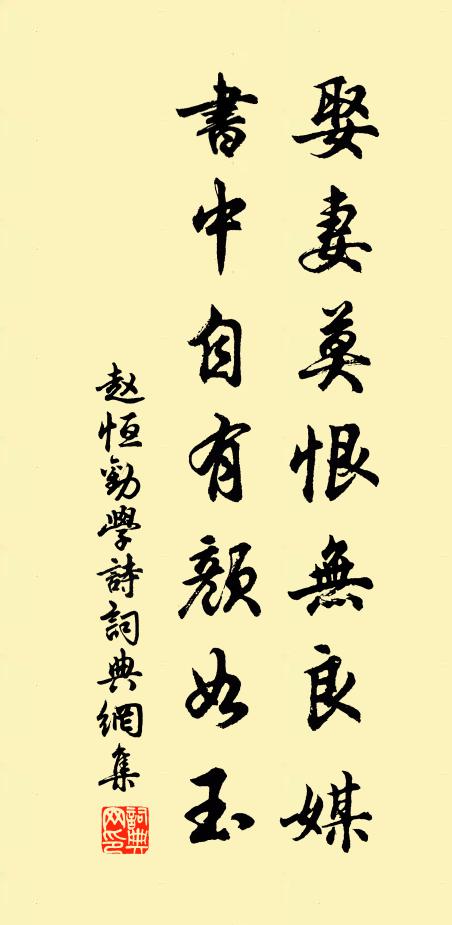 娶妻莫恨無良媒
書中自有顏如玉
赵恒勸學詩詞典網集
詞典網印